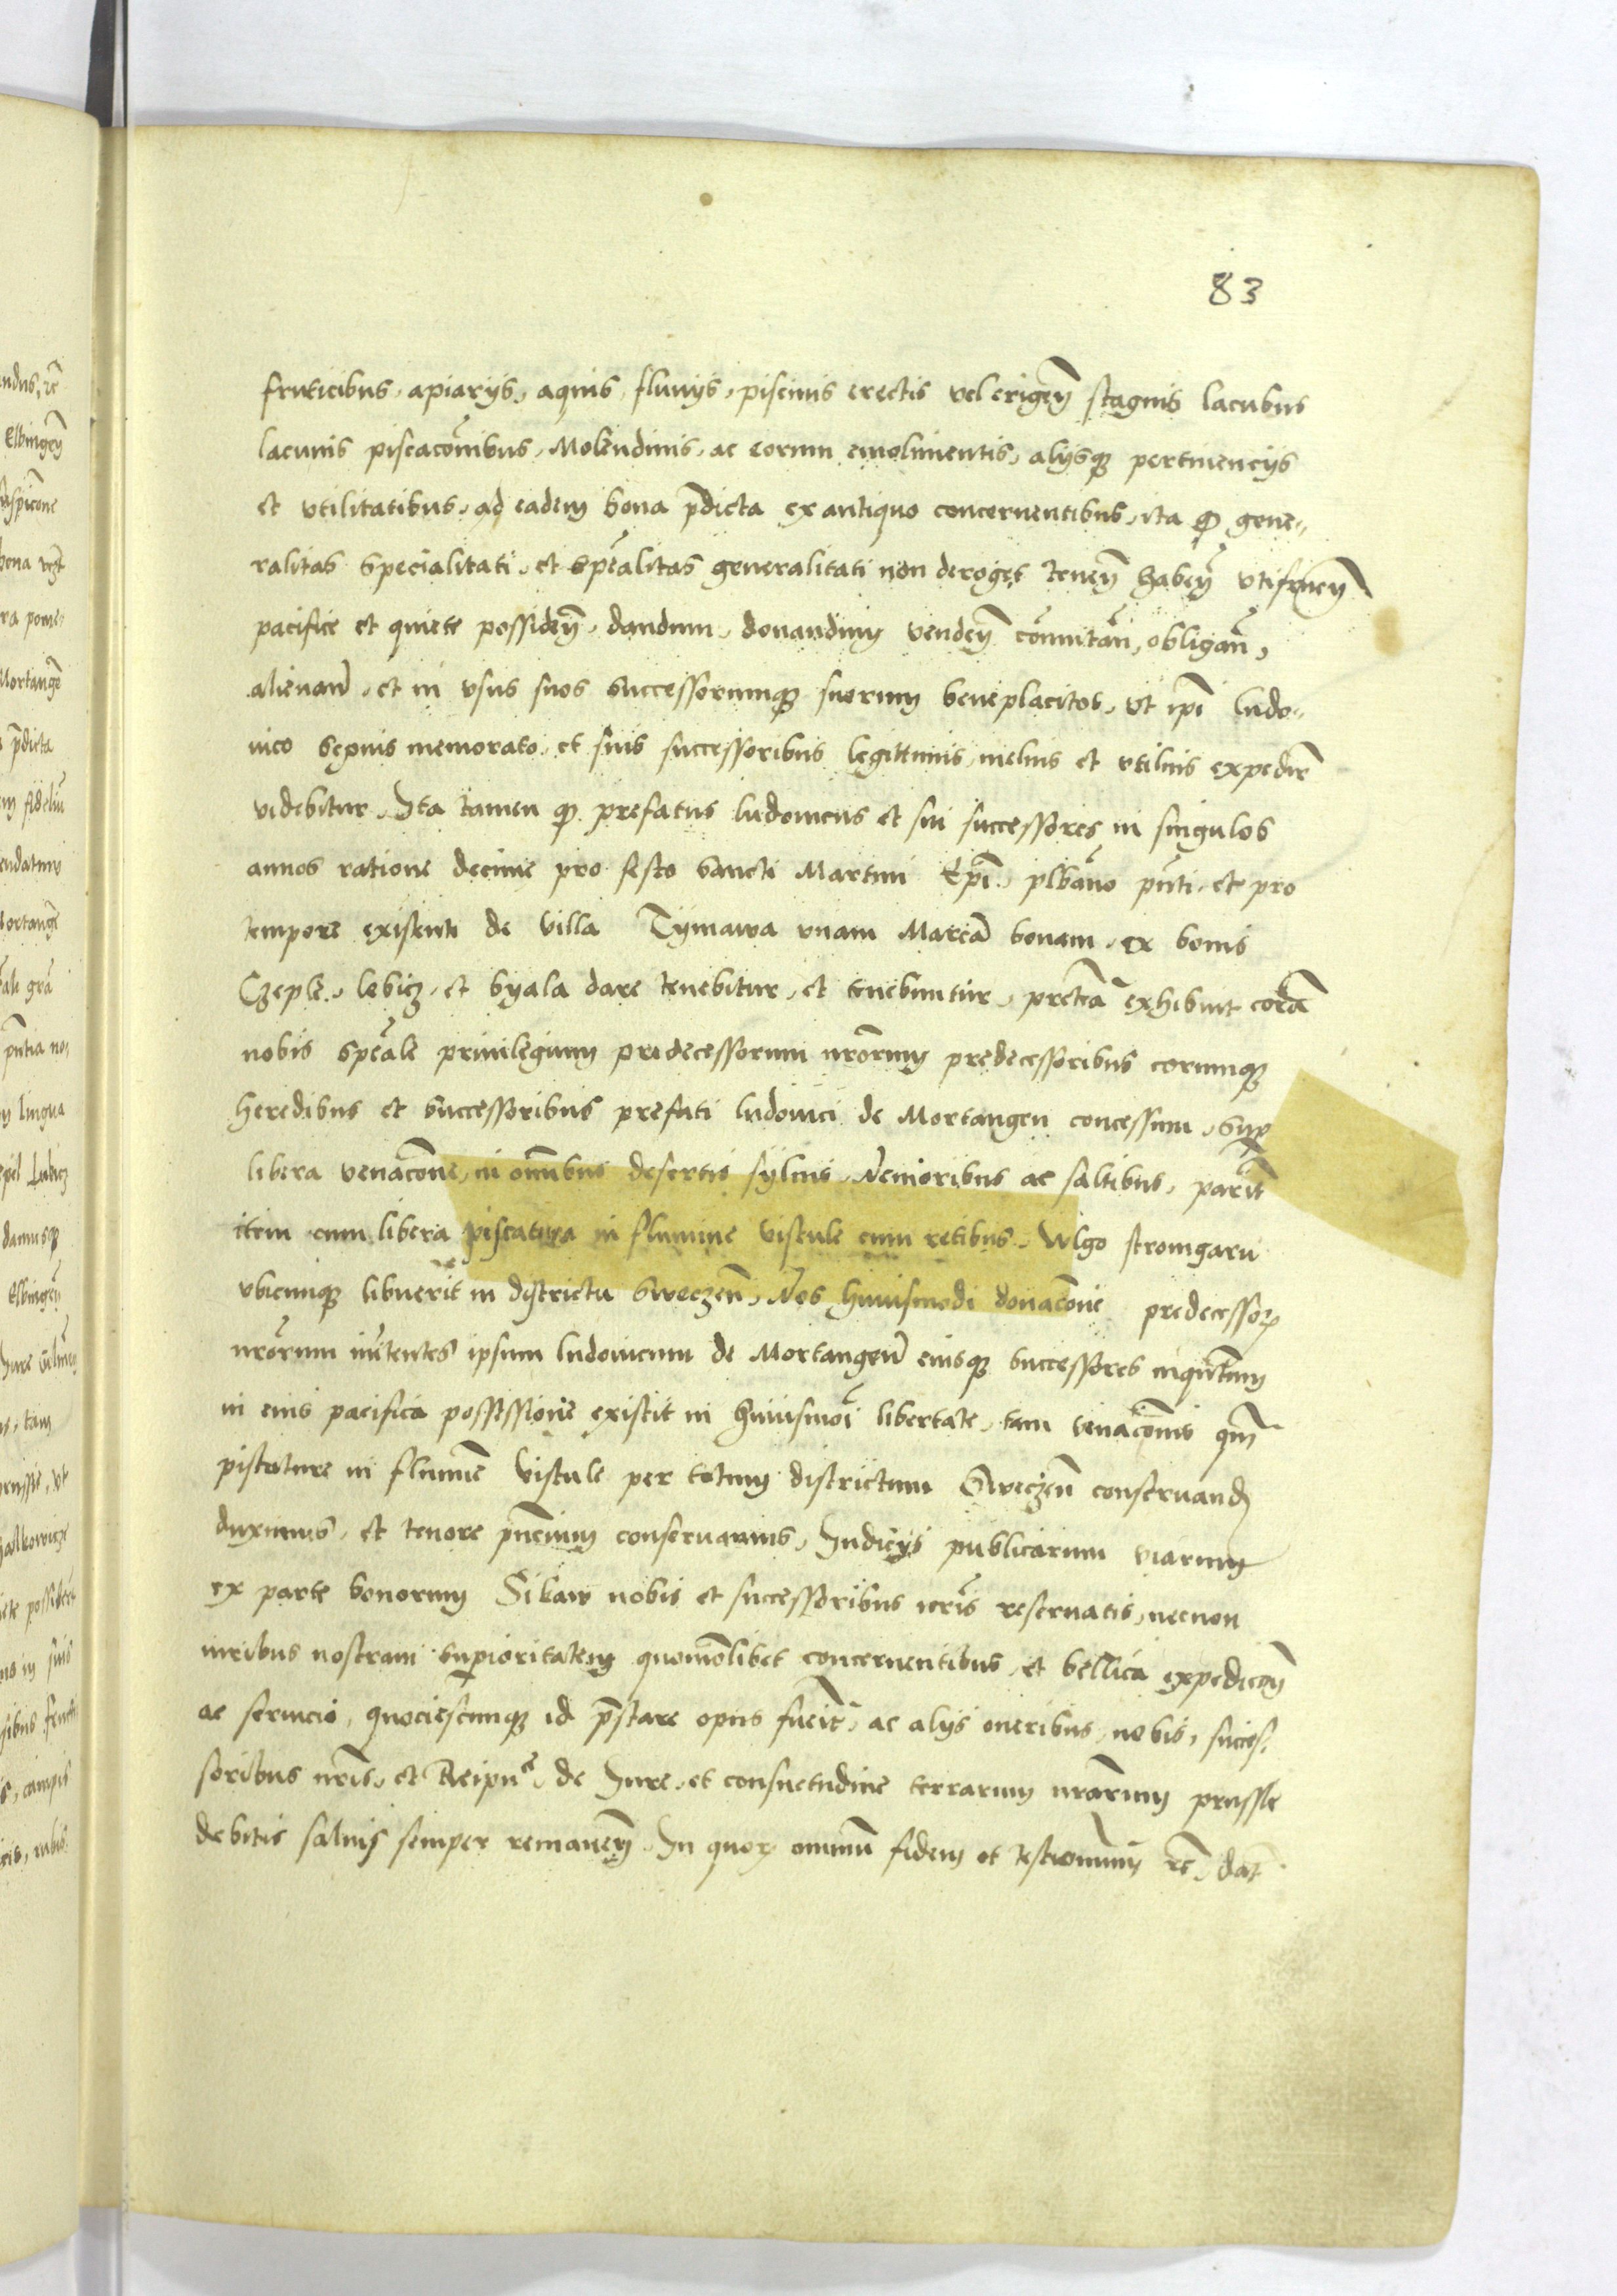 83
fruticibus, apiarijs, aquis, fluuijs, piscinis erectis vel erigen̄ stagnis lacubus
lacunis piscacōnibus, Molendinis, ac eorum emolimentis, alijsqꝫ pertinencijs
et vtilitatibus, ad eadem bona p̄dicta ex antiquo concernentibus, ita ꝙ gene-
ralitas specialitati, et spēalitas generalitati non deroget tenen̄ haben̄ vtifruen̄
pacifice et quiete possiden̄, dandum, donandum venden̄ cōmutan̄, obligan̄,
alienan̄, et in vsus suos successorumqꝫ suorum beneplacitos, vt ip̄i Ludo-
uico sepius memorato, et suis successoribus legittimis, melius et vtilius expedire
videbitur, Ita tamen ꝙ prefatus Ludouicus et sui successores in singulos
annos ratione decime pro festo Sancti Martini Ep̄i, plb̄ano pn̄ti, et pro
tempore existenti de villa Tymawa vnam Marcā bonam, ex bonis
Czeple, Lebicz, et byala dare tenebitur, et tenebuntur, pretēa exhibuit corā
nobis spēale priuilegium predecessorum nr̄orum predecessoribus eorumqꝫ
heredibus et Successoribus prefati Ludouici de Mortangen concessum, sup
libera venacōne, in om̄ibus desertis syluis, Nemoribus ac saltibus, parit̄
item cum libera piscatura in flumine Vistule cum retibus, Wlgo stromgarn
vbicunqꝫ libuerit in districtu Sweczen̄, Nos huiusmodi donacōni predecessoꝝ
nr̄orum ip̄sum Ludouicum de Mortangen̄ eiusqꝫ successores inqn̄tum
in eius pacifica possessione existit in huiusmōi libertate, tam venacōnis qm̄
piscature in flumine Vistule per totum districtum Sweczen̄ conseruand
duximus, et tenore pn̄cium conseruamus, Iudicijs publicarum viarum
ex parte bonorum Sikaw nobis et successoribus nr̄is reseruatis, necnon
iuribus nostram supioritatem quomōlibet concernentibus, et bellica expedicōn
ac seruicio, quociescunqꝫ id p̄stare opus fuerit, ac alijs oneribus, nobis, succes-
soribus nr̄is, et Reipu͞e, de Iure, et consuetudine terrarum nr̄arum prussie
debitis saluis semper remanen̄, In quoꝝ omnium fidem et testimonium ꝛc̄, dat